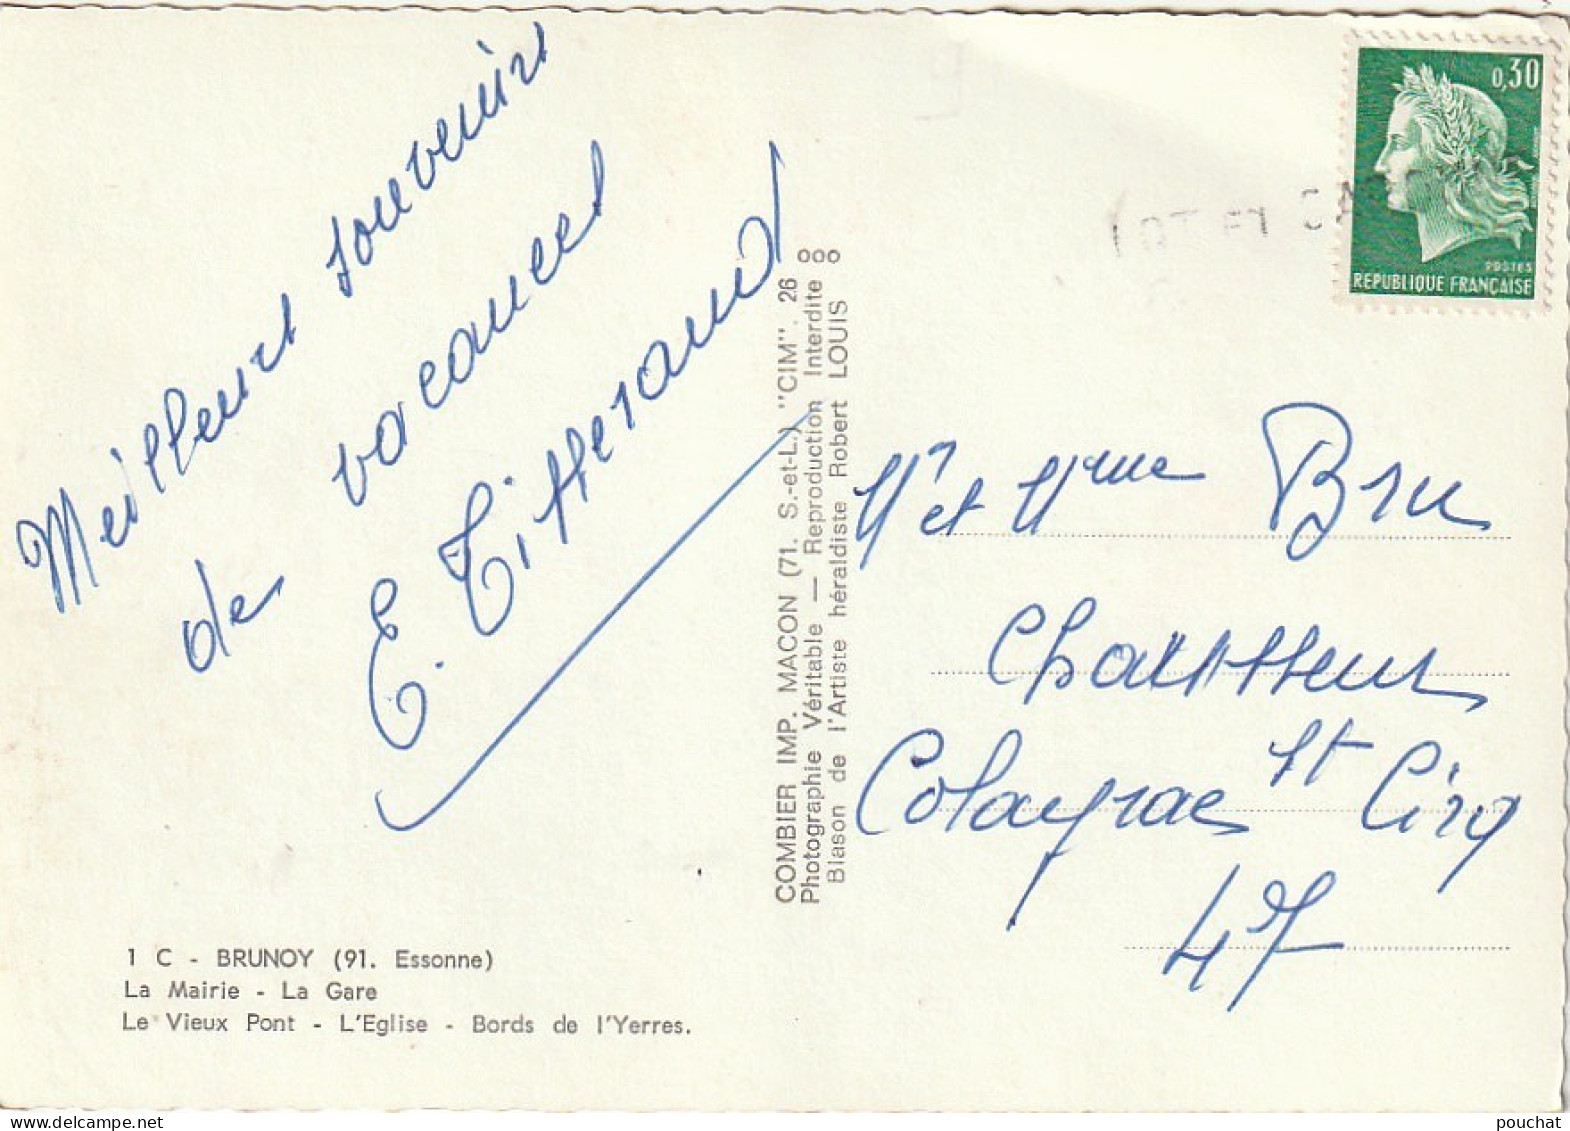 Meilleurs souvenirs
de vacances
E. Titterand
1 C - BRUNOY (91. Essonne)
La Mairie - La Gare
Le Vieux Pont - L'Eglise - Bords de l'Yerres.
COMBIER IMP. MACON (71. S.-et-L.) "CIM". 26
Photographie Véritable — Reproduction Interdite
Blason de l'Artiste héraldiste Robert LOUIS
0,30
POSTES
REPUBLIQUE FRANÇAISE
LOT ET GA
Mr et Mme Bru
Chauffeur
Colayrac St Cirq
47
pouchat